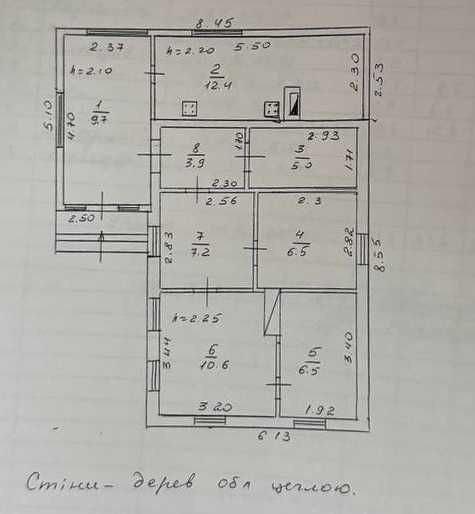 8.45
2.37
h=2.20
5.50
h=2.10
2
12.4
2.30
2.53
5.10
4.70
1
9.7
8
3.9
1.70
2.93
3
5.0
1.71
2.30
2.50
2.56
2.3
2.83
7
7.2
4
6.5
2.82
8.55
h=2.25
3.44
6
10.6
5
6.5
3.40
3.20
1.92
6.13
Стіни - дерев обл цеглою.